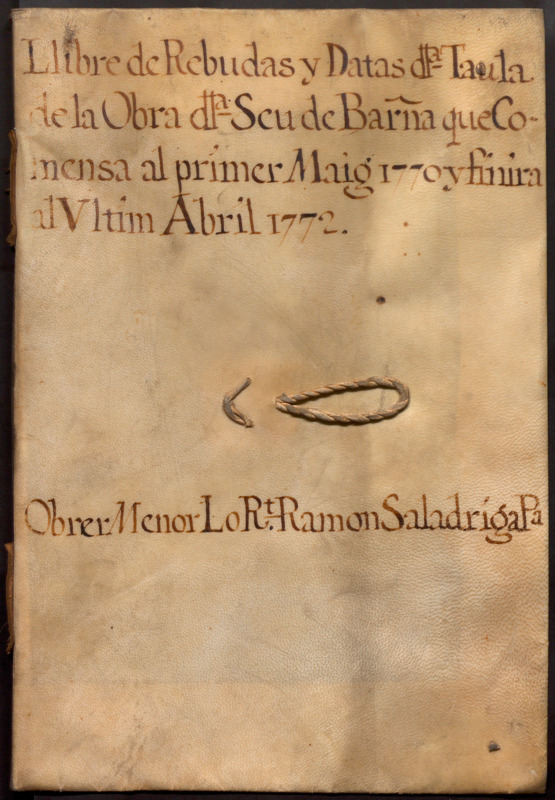 Llibre de Rebudas y Datas dlla. Taula
de la Obra dlla. Seu de Barña que Co-
mensa al primer Maig 1770 y finira
al Vltim Abril 1772.
Obrer Menor Lo Rt. Ramon Saladriga Pa